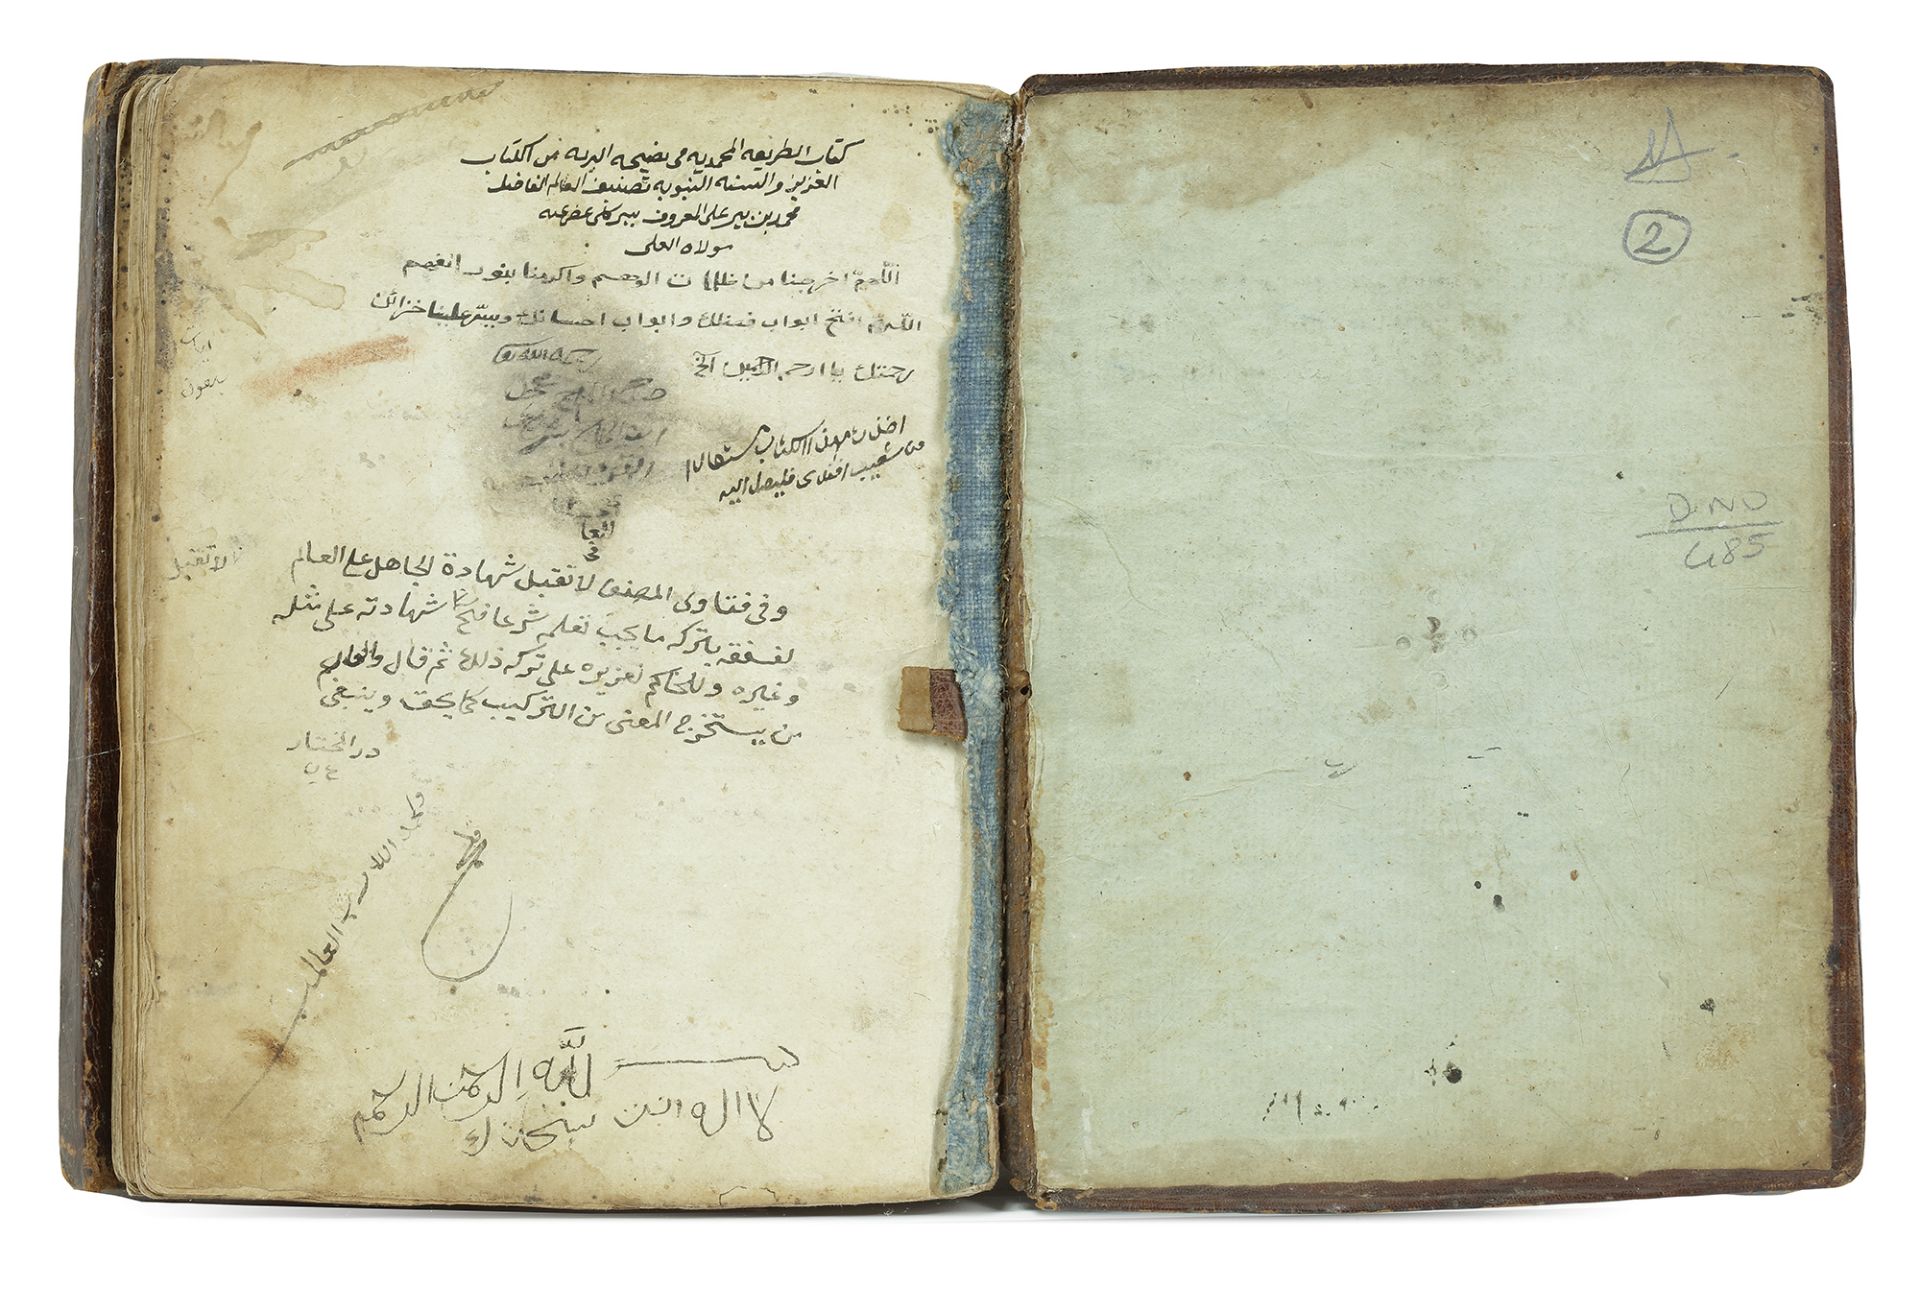 كتاب الطريقه المحمديه في نصيحه البريه من الكتاب
العزيز والسنه النبويه تصنيف العالم الفاضل
محمد بن بير علي المعروف ببركلي عفى عنه
مولاه العلي
اللهم اخرجنا من ظلمات الوهم واكرمنا بنور الفهم
اللهم افتح ابواب فضلك وابواب احسانك ويسر علينا خزائن
رحمتك يا ارحم الراحمين
رحمة الله
اخذت هذا الكتاب
من شعيب افندي فليصل اليه
وفي فتاوى المصنف لا تقبل شهادة الجاهل على العالم
لفسقه بتركه ما يجب تعلمه شرعا فح شهادته على مثله
وغيره وللحاكم تعزيره على تركه ذلك ثم قال والعالم
من يستخرج المعنى من التركيب كما يحق وينبغي
در المختار
لا تقبل
الله رب العالمين
بسم الله الرحمن الرحيم
لا اله انت سبحانك
2
D.NO
485